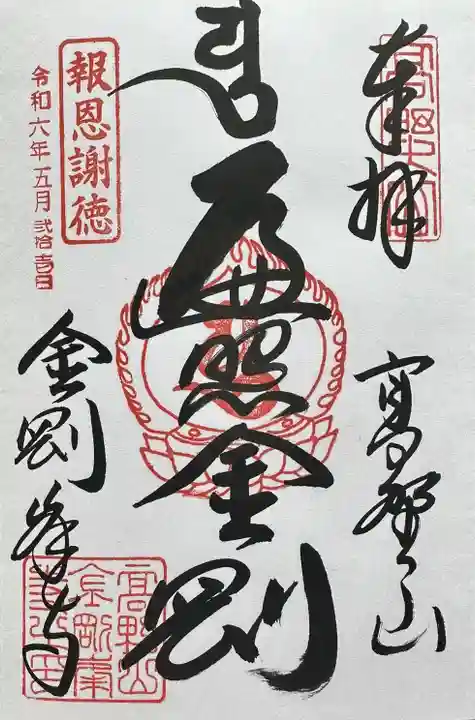 奉拝
高野山
遍照金剛
報恩謝徳
令和六年五月弐拾壱日
金剛峯寺
高野山
金剛峯